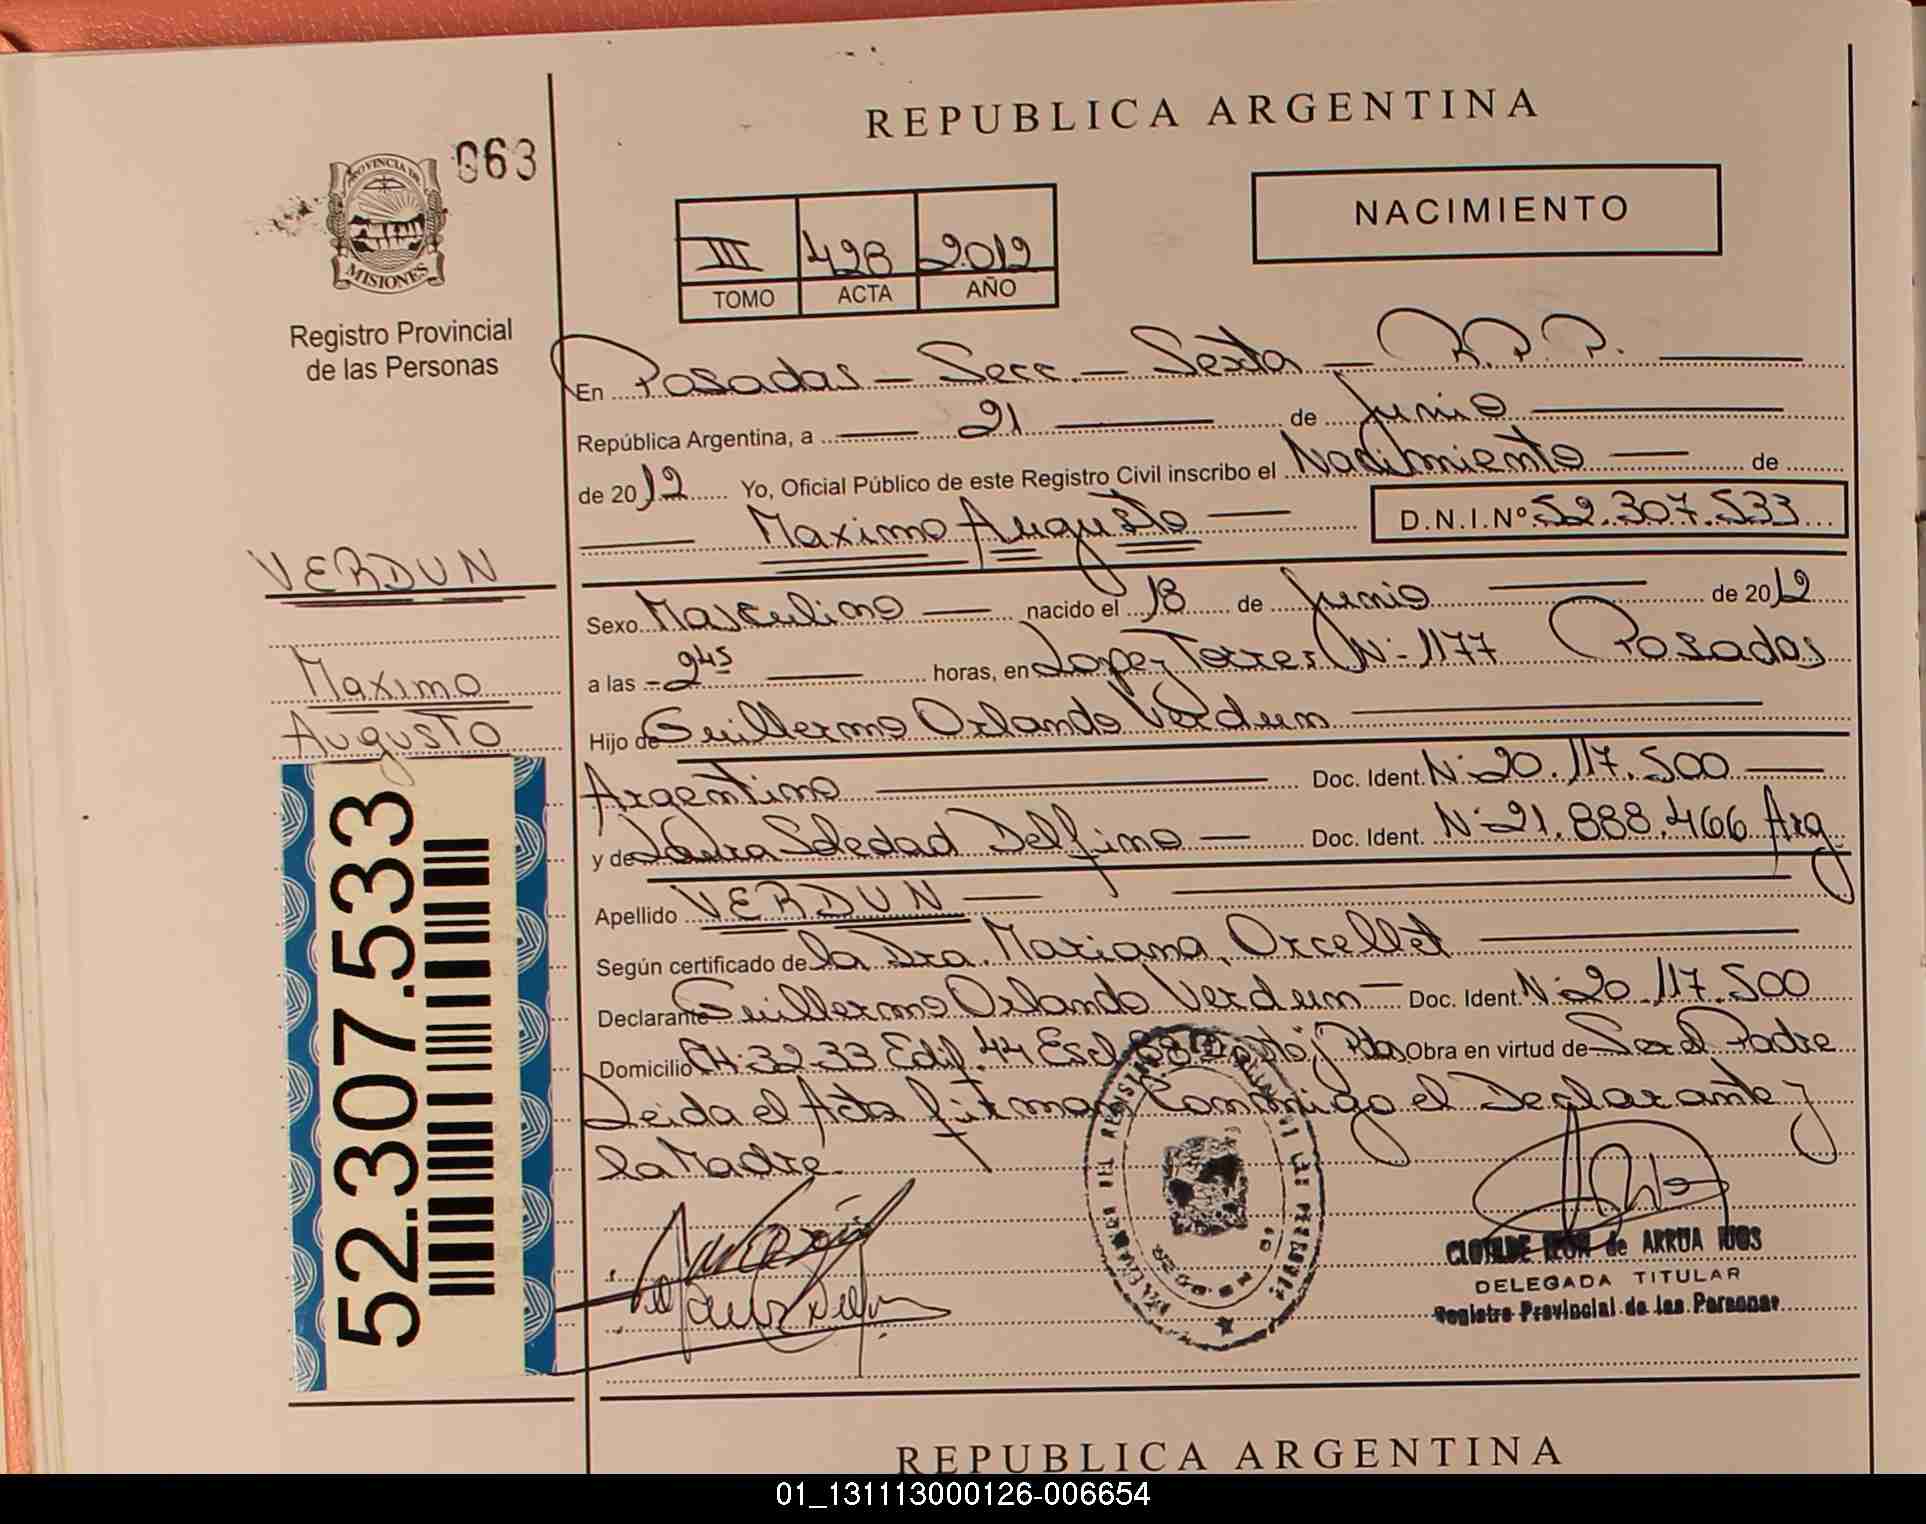 REPUBLICA ARGENTINA
063
PROVINCIA DE
MISIONES
Registro Provincial
de las Personas
NACIMIENTO
III 428 2012
TOMO ACTA AÑO
En Posadas - Secc. - Sexta - R.P.P.
República Argentina, a 21 de Junio
de 2012 Yo, Oficial Público de este Registro Civil inscribo el Nacimiento de
Maximo Augusto D.N.I.Nº 52.307.533
VERDUN
Maximo
Augusto
52.307.533
Sexo Masculino nacido el 18 de Junio de 2012
a las 2 45 horas, en Lopez Torres Nº 1177 Posadas
Hijo de Guillermo Orlando Verdun
Argentino Doc. Ident. Nº 20.117.500
y de Laura Soledad Delfino Doc. Ident. Nº 21.888.466 Arg
Apellido VERDUN
Según certificado de la Dra. Mariana, Orcellet
Declarante Guillermo Orlando Verdun Doc. Ident. Nº 20.117.500
Domicilio CH. 32-33 Edif. 44 Esc. Pdas Obra en virtud de Ser el Padre
Leida el Acta firman Conmigo el Declarante y
la Madre.
CLOTILDE LEON de ARRUA RIOS
DELEGADA TITULAR
Registro Provincial de las Personas
REPUBLICA ARGENTINA
01_131113000126-006654